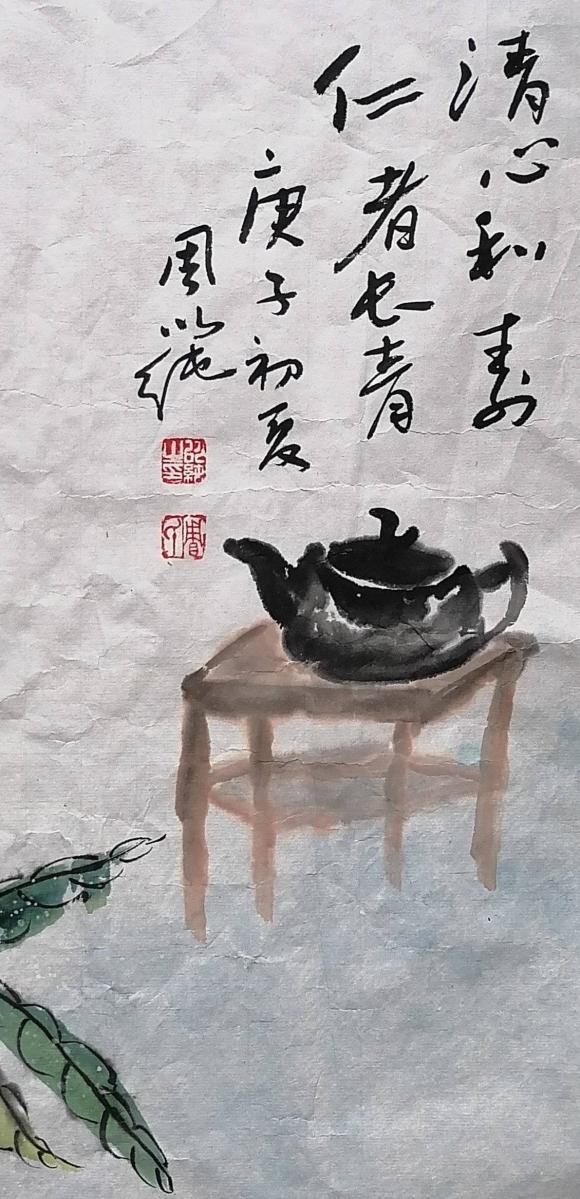 清心和寿
仁者长青
庚子初夏
周